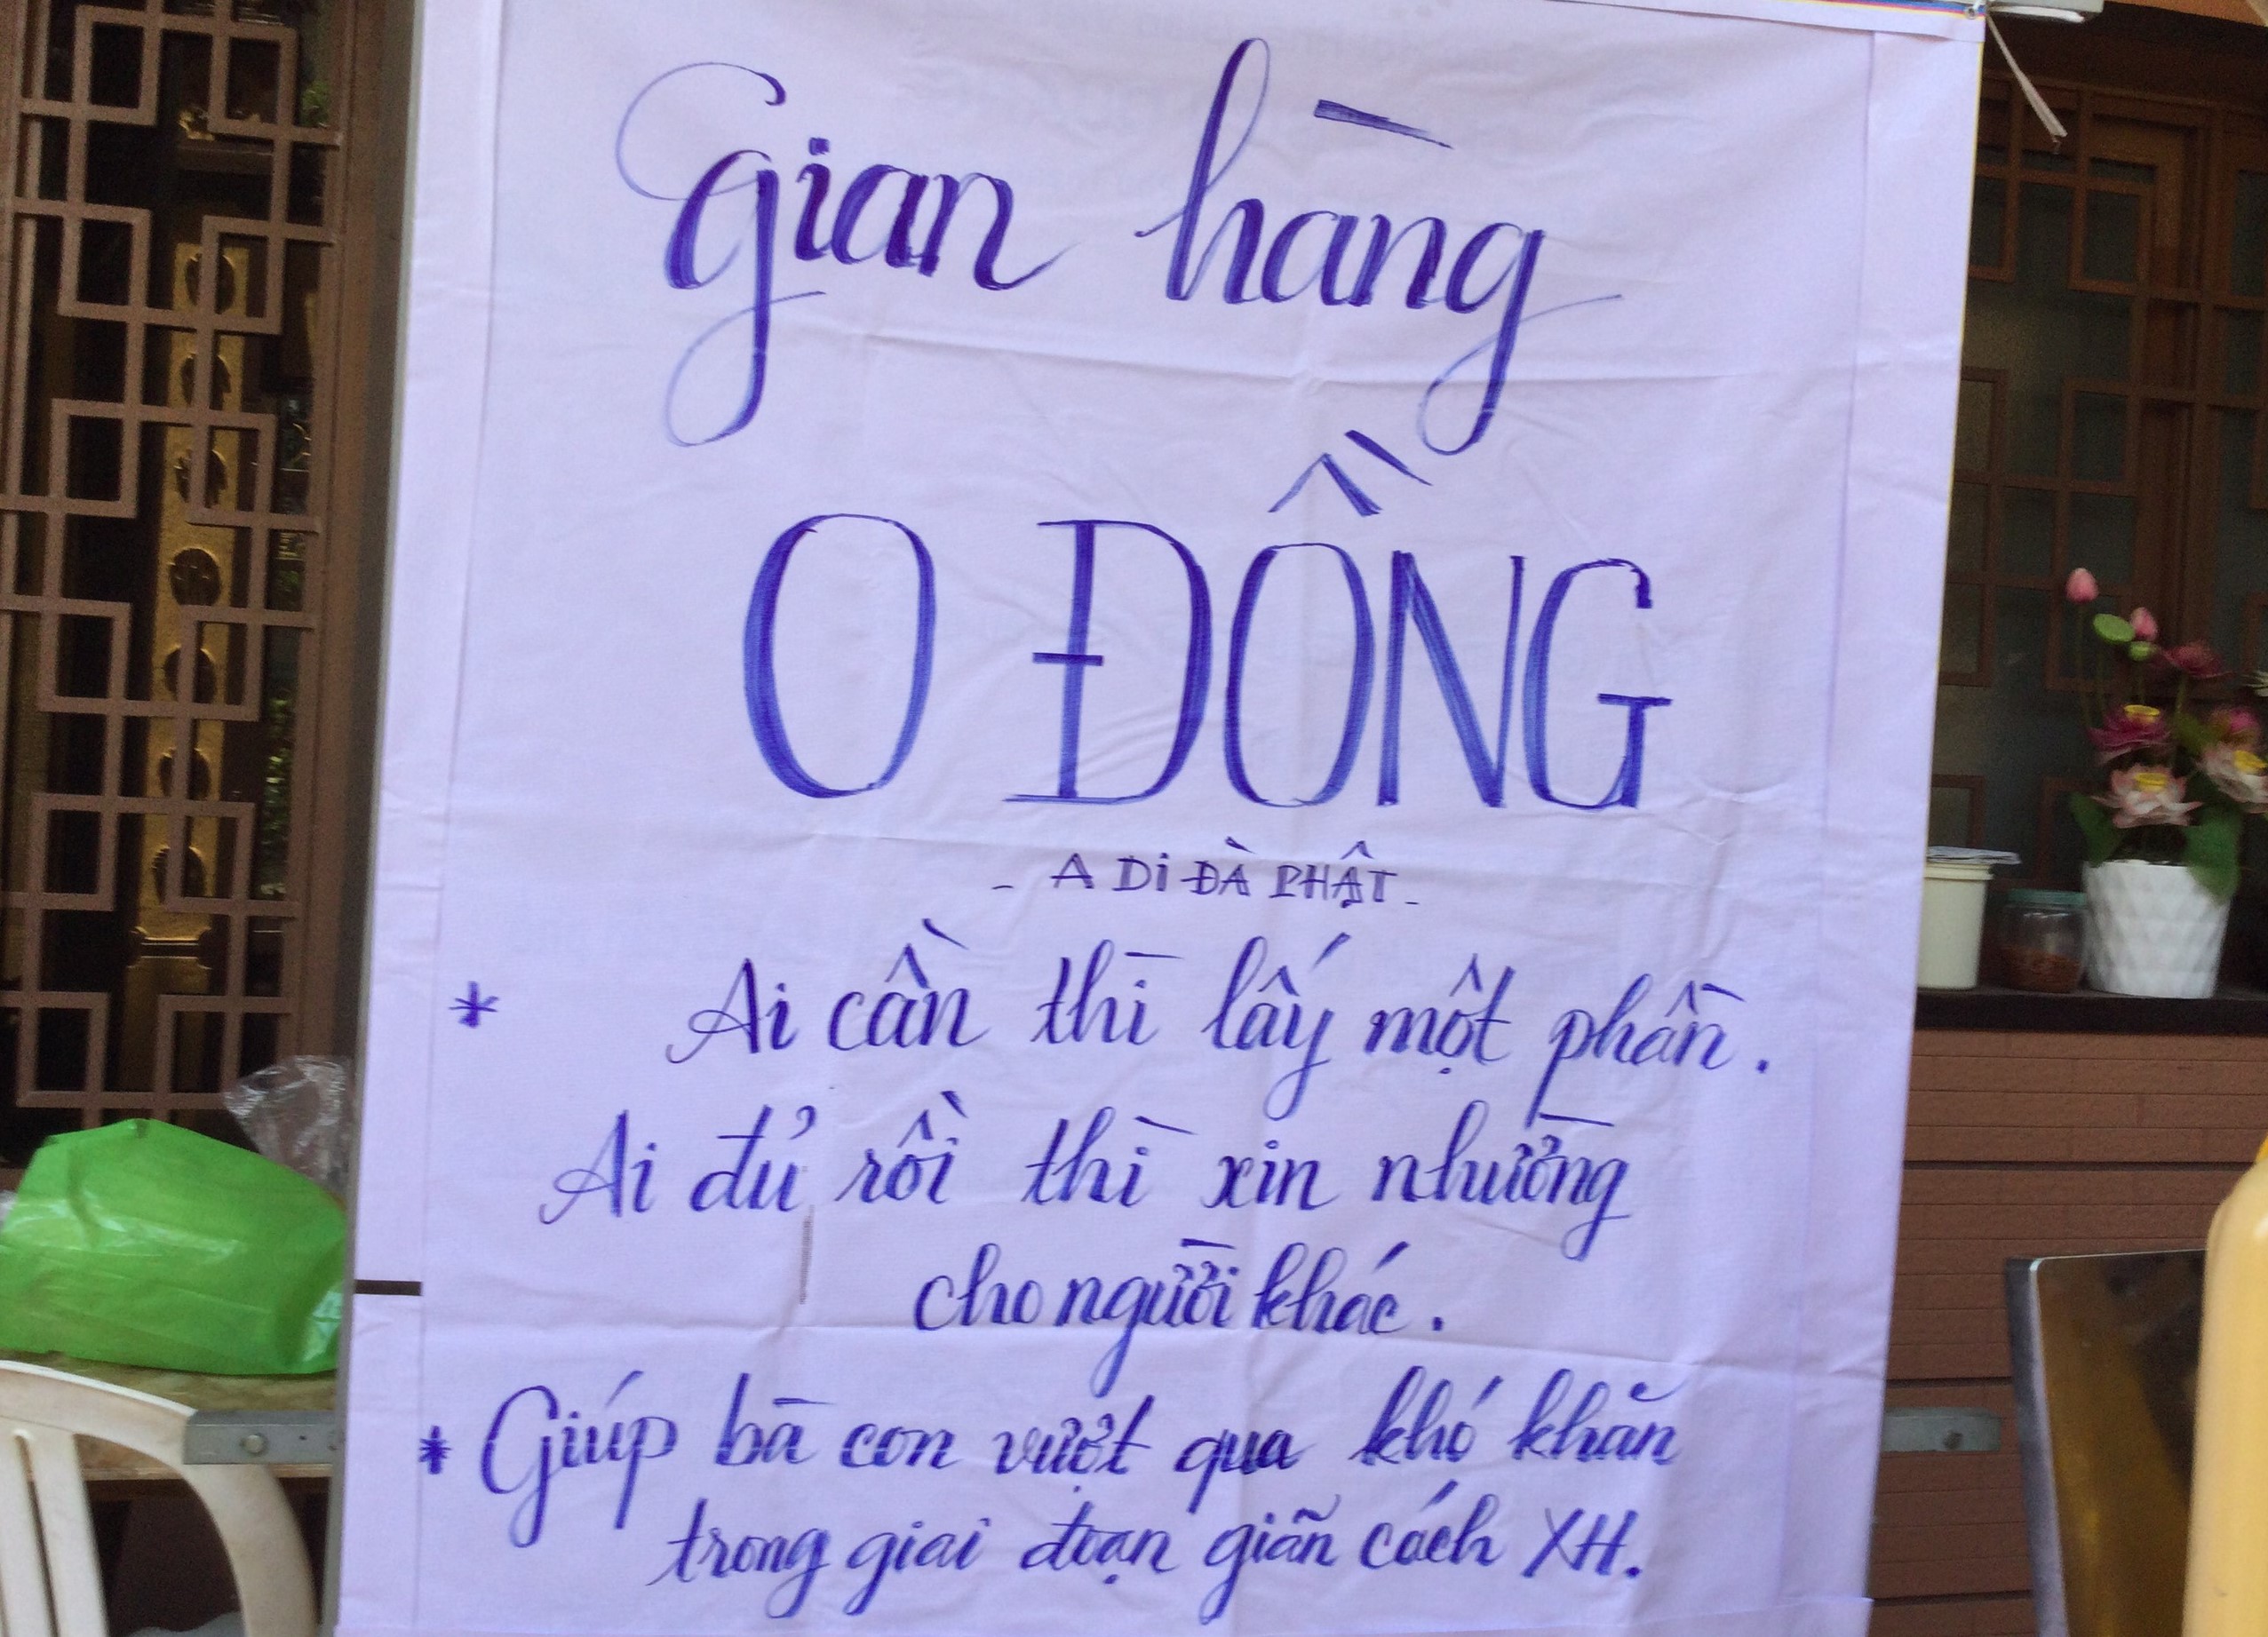 Gian hàng
0 ĐỒNG
- A Di ĐÀ PHẬT -
* Ai cần thì lấy một phần.
Ai đủ rồi thì xin nhường
cho người khác.
* Giúp bà con vượt qua khó khăn
trong giai đoạn giãn cách XH.